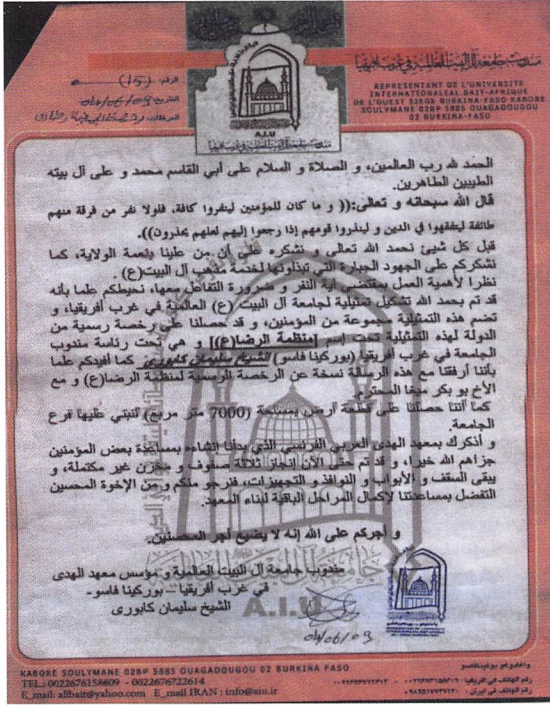 مندوب جامعة آل البيت العالمية في غرب افريقيا
REPRESENTANT DE L'UNIVERSITE
INTERNATIONALEAL BAIT-AFRIQUE
DE L'OUEST SIEGE BURKINA-FASO KABORE
SOULYMANE 02BP 5885 OUAGADOUGOU
02 BURKINA-FASO
الرقم: (15)
التاريخ: 04/06/09
المرفقات:
A.I.U
الحمد لله رب العالمين، و الصلاة و السلام على أبي القاسم محمد و على آل بيته
الطيبين الطاهرين.
قال الله سبحانه و تعالى:(( و ما كان للمؤمنين لينفروا كافة، فلولا نفر من فرقة منهم
طائفة ليتفقهوا في الدين و لينذروا قومهم إذا رجعوا إليهم لعلهم يحذرون)).
قبل كل شيئ نحمد الله تعالى و نشكره على أن من علينا بنعمة الولاية، كما
نشكركم على الجهود الجبارة التي تبذلونها لخدمة مذهب آل البيت(ع) .
نظرا لأهمية العمل بمقتضى اية النفر و ضرورة التفاعل معها، نحيطكم علما بأنه
قد تم بحمد الله تشكيل تمثيلية لجامعة آل البيت (ع) العالمية في غرب أفريقيا، و
تضم هذه التمثيلية مجموعة من المؤمنين، و قد حصلنا على رخصة رسمية من
الدولة لهذه التمثيلية تحت إسم [منظمة الرضا(ع)] و هي تحت رئاسة مندوب
الجامعة في غرب أفريقيا (بوركينا فاسو) الشيخ سليمان كابوري كما أفيدكم علما
بأننا أرفقنا مع هذه الرسالة نسخة عن الرخصة الرسمية لمنظمة الرضا(ع) و مع
الأخ بو بكر ميغا المحترم.
كما أننا حصلنا على قطعة أرض بمساحة (7000 متر مربع) لنبني عليها فرع
الجامعة.
و أذكرك بمعهد الهدى العربي الفرنسي الذي بدأنا إنشاءه بمساعدة بعض المؤمنين
جزاهم الله خيرا، و قد تم حتى الآن إنجاز ثلاثة صفوف و مخزن غير مكتملة، و
يبقى السقف و الأبواب و النوافذ و التجهيزات، فنرجو منكم ومن الإخوة المحسنين
التفضل بمساعدتنا لإكمال المراحل الباقية لبناء المعهد.
و أجركم على الله إنه لا يضيع أجر المحسنين.
مندوب جامعة آل البيت العالمية و مؤسس معهد الهدى
في غرب أفريقيا – بوركينا فاسو-
الشيخ سليمان كابورى
A.I.U
04/06/09
KABORE SOULYMANE 02BP 5885 OUAGADOUGOU 02 BURKINA FASO
TEL.: 0022676158609 - 0022676722614
E_mail: alibait@yahoo.com E_mail IRAN : info@aiu.ir
رقم الهاتف في افريقيا :
رقم الهاتف في ايران :